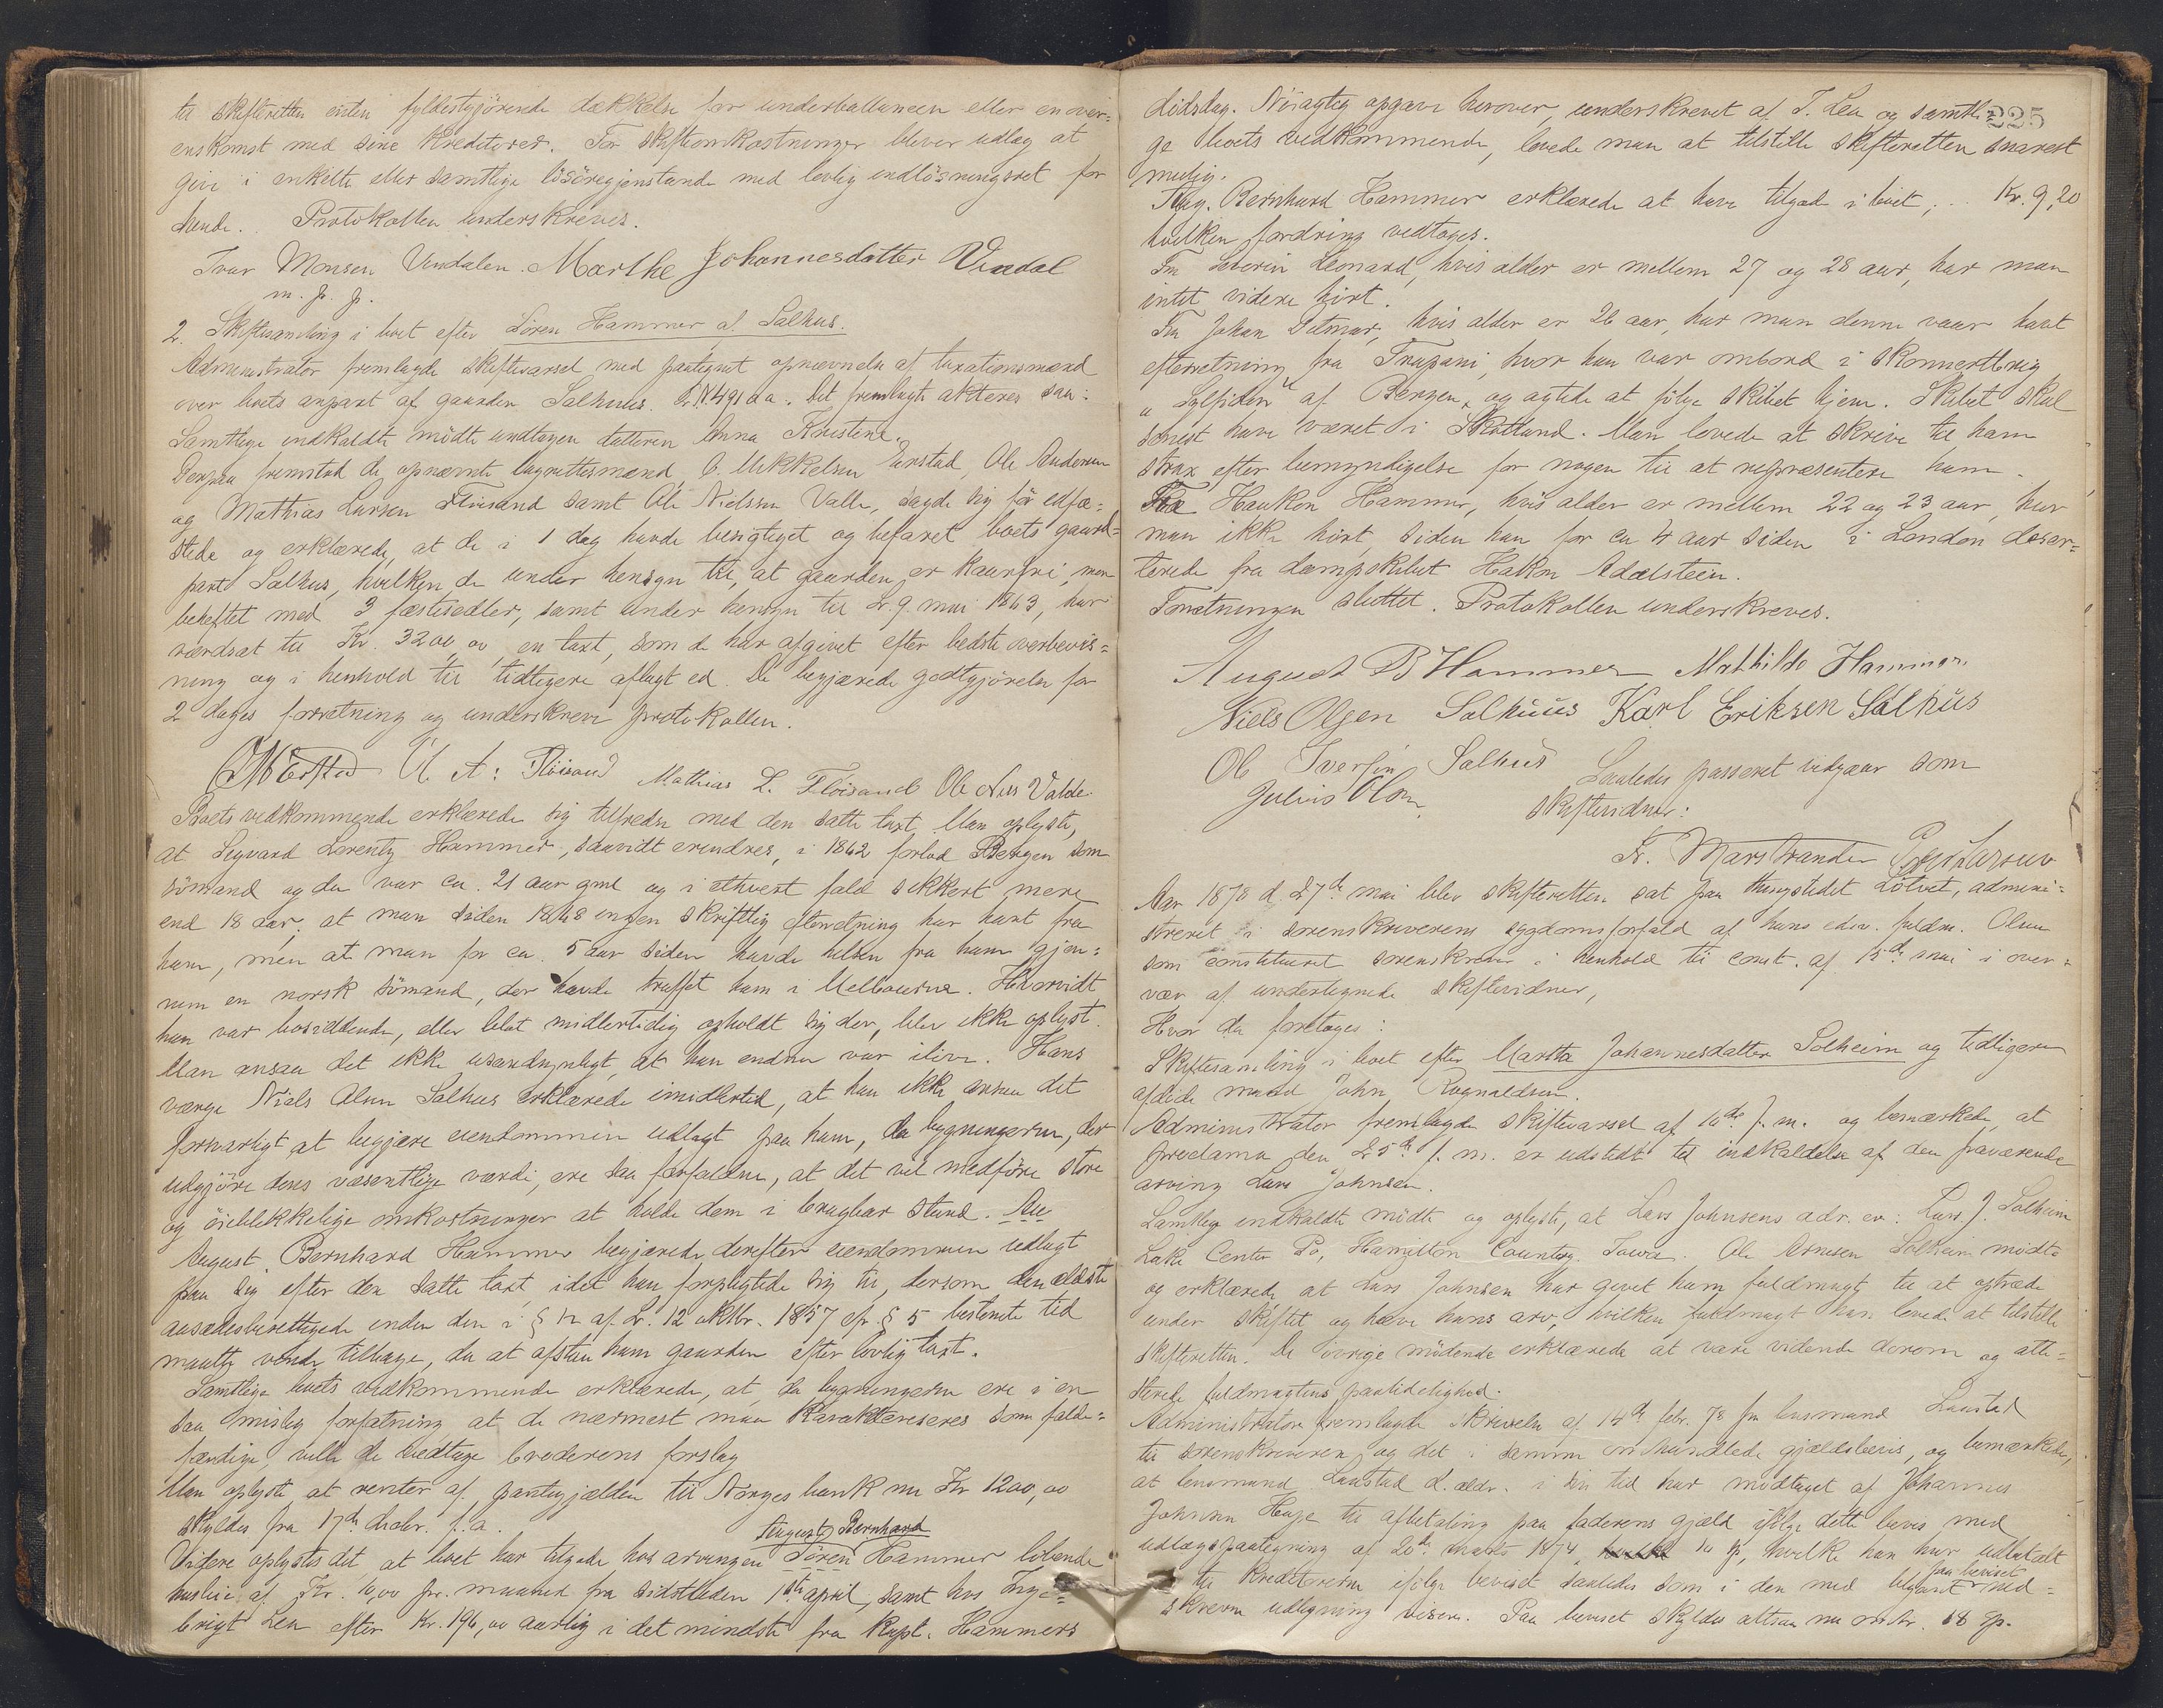 til skifteretten enten fyldestgjørende dækkelse for underballancen eller en over=
enskomst med sine kreditorer. For skifteomkostninger bliver udlæg at
give i enkelte eller samtlige løsøregjenstande med lovlig indløsningsret for
hende. Protokollen underskreves.
Ivar Monsen Vindalen. Marthe Johannesdatter Vindal
m. f. p.
2. Skiftesamling i boet efter Søren Hammer af Salhus.
Administrator fremlagde skiftevarsel med paategnet opnævnelse af taxationsmænd
over boets anpart af gaarden Salhus. Det fremlagte akteres saa:
Samtlige indkaldte mødte undtagen datteren Anna Kristine.
Derpaa fremstod de opnævnte lagrettesmænd, O. Mikkelsen Eirstad, Ole Andersen
og Mathias Larsen Fløisand samt Ole Nielsen Valle, sagde sig før edfæ=
stede og erklærede, at de i 1 dag havde besigtiget og befaret boets gaard=
part Salhus, hvilken de under hensyn til, at gaarden er kaarfri, men
beheftet med 3 fæstesedler, samt under hensyn til L. 9 mai 1863, har
værdsat til Kr. 3200,00, en taxt, som de har afgivet efter bedste overbevis=
ning og i henhold til tidligere aflagt ed. De begjærede godtgjørelse for
2 dages forretning og underskrev protokollen.
O. A: Fløisand Mathias L. Fløisand Ole Niels Valde
Boets vedkommende erklærede sig tilfredse med den satte taxt. Man oplyste,
at Sigvard Lorentz Hammer, saavidt erindres, i 1862 forlod Bergen som
sømand og da var ca. 21 aar gml og i ethvert fald sikkert mere
end 18 aar; at man siden 1868 ingen skriftlig efterretning har havt fra
ham, men at man for ca. 5 aar siden havde hilsen fra ham gjen=
nem en norsk sømand, der havde truffet ham i Melbourne. Hvorvidt
han var bosiddende, eller blot midlertidig opholdt sig der, blev ikke oplyst.
Man ansaa det ikke usandsynligt, at han endnu var ilive. Hans
værge Niels Olsen Salhus erklærede imidlertid, at han ikke ansaa det
forsvarligt at begjære eiendommen udlagt paa ham, da bygningerne, der
udgjøre dens væsentlige værdi, ere saa forfaldne, at det vil medføre store
og øieblikkelige omkostninger at holde dem i brugbar stand.
August Bernhard Hammer begjærede derefter eiendommen udlagt
paa sig efter den satte taxt, idet han forpligtede sig til, dersom den ældste
aasædesberettigede inden den i § 12 af L. 12 oktbr. 1857 cfr. § 5 bestemte tid
maatte vende tilbage, da at afstaa ham gaarden efter lovlig taxt.
Samtlige boets vedkommende erklærede, at, da bygningerne ere i en
saa mislig forfatning at de nærmest maa karakteriseres som falde=
færdige, ville de vedtage broderens forslag
Man oplyste at renter af pantegjælden til Norges bank nu Kr 1200,00
skyldes fra 17de decbr. f. a.
August Bernhard
Videre oplystes det at boet har tilgode hos arvingen Søren Hammer løbende
husleie af Kr. 10,00 pr. maaned fra sidstleden 1ste april, samt hos Inge=
brigt Lea efter Kr. 196,00 aarlig i det mindste fra Kapt. Hammers
225
dødsdag. Nøiagtig opgave herover, underskrevet af I. Lea og samtli=
ge boets vedkommende, lovede man at tilstille skifteretten snarest
mulig.
Aug. Bernhard Hammer erklærede at have tilgode i boet, .. Kr. 9,20
hvilken fordring vedtoges.
Fra Severin Leonard, hvis alder er mellem 27 og 28 aar, har man
intet videre hørt.
Fra Johan Ditmar, hvis alder er 26 aar, har man denne vaar havt
efterretning fra Trapani, hvor han var ombord i skonnertbrig
„Sylfiden“ af Bergen, og agtede at følge skibet hjem. Skibet skal
senest have været i Skotland. Man lovede at skrive til ham
strax efter bemyndigelse for nogen til at repræsentere ham.
Fra Haakon Hammer, hvis alder er mellem 22 og 23 aar, har
man ikke hørt, siden han for ca 4 aar siden i London deser=
terede fra dampskibet Hakon Adelsteen.
Forretningen sluttet. Protokollen underskreves.
August B Hammer Mathilde Hammer
Niels Olsen Salhuus Karl Eriksen Salhus
Ole Iversen Salhus Saaledes passeret vidgaar som
Julius Olsen. skiftevidner:
Fr. Marstrander
Aar 1878 d. 27de mai blev skifteretten sat paa thingstedet Lötvet, admini=
streret i sorenskriverens sygdomsforfald af hans edsv. fuldm. Olsen
som constitueret sorenskriver i henhold til const. af 15de mai i over=
vær af undertegnede skiftevidner,
Hvor da foretoges:
Skiftesamling i boet efter Martha Johannesdatter Solheim og tidligere
afdøde mand John Rognaldsen.
Administrator fremlagde skiftevarsel af 10de f. m. og bemærkede, at
proclama den 25de f. m. er udstedt til indkaldelse af den fraværende
arving Lars Johnsen.
Samtlige indkaldte mødte og oplyste, at Lars Johnsens adr. er: Lars J. Solheim
Lake Center Po, Hamilton County Iowa. Ole Arnesen Solheim mødte
og erklærede at Lars Johnsen har givet ham fuldmagt til at optræde
under skiftet og hæve hans arv, hvilken fuldmagt han lovede at tilstille
skifteretten. De øvrige mødende erklærede at være vidende derom og atte=
sterede fuldmagtens paalidelighed.
Administrator fremlagde skrivelse af 14de febr. 78 fra lensmand Laustad
til sorenskriveren og det i samme omhandlede gjældsbevis, og bemærkede,
at lensmand Laustad d. ældr. i sin tid har modtaget af Johannes
Johnsen Hage til afbetaling paa faderens gjæld ifølge dette bevis med
udlægspaategning af 20de marts 1874, 10 Sp, hvilke han har udbetalt
til kreditorerne ifølge beviset saaledes som i den med blyant paa beviset ned=
skrevne udligning vises. Paa beviset skyldes altsaa nu 68 Sp.